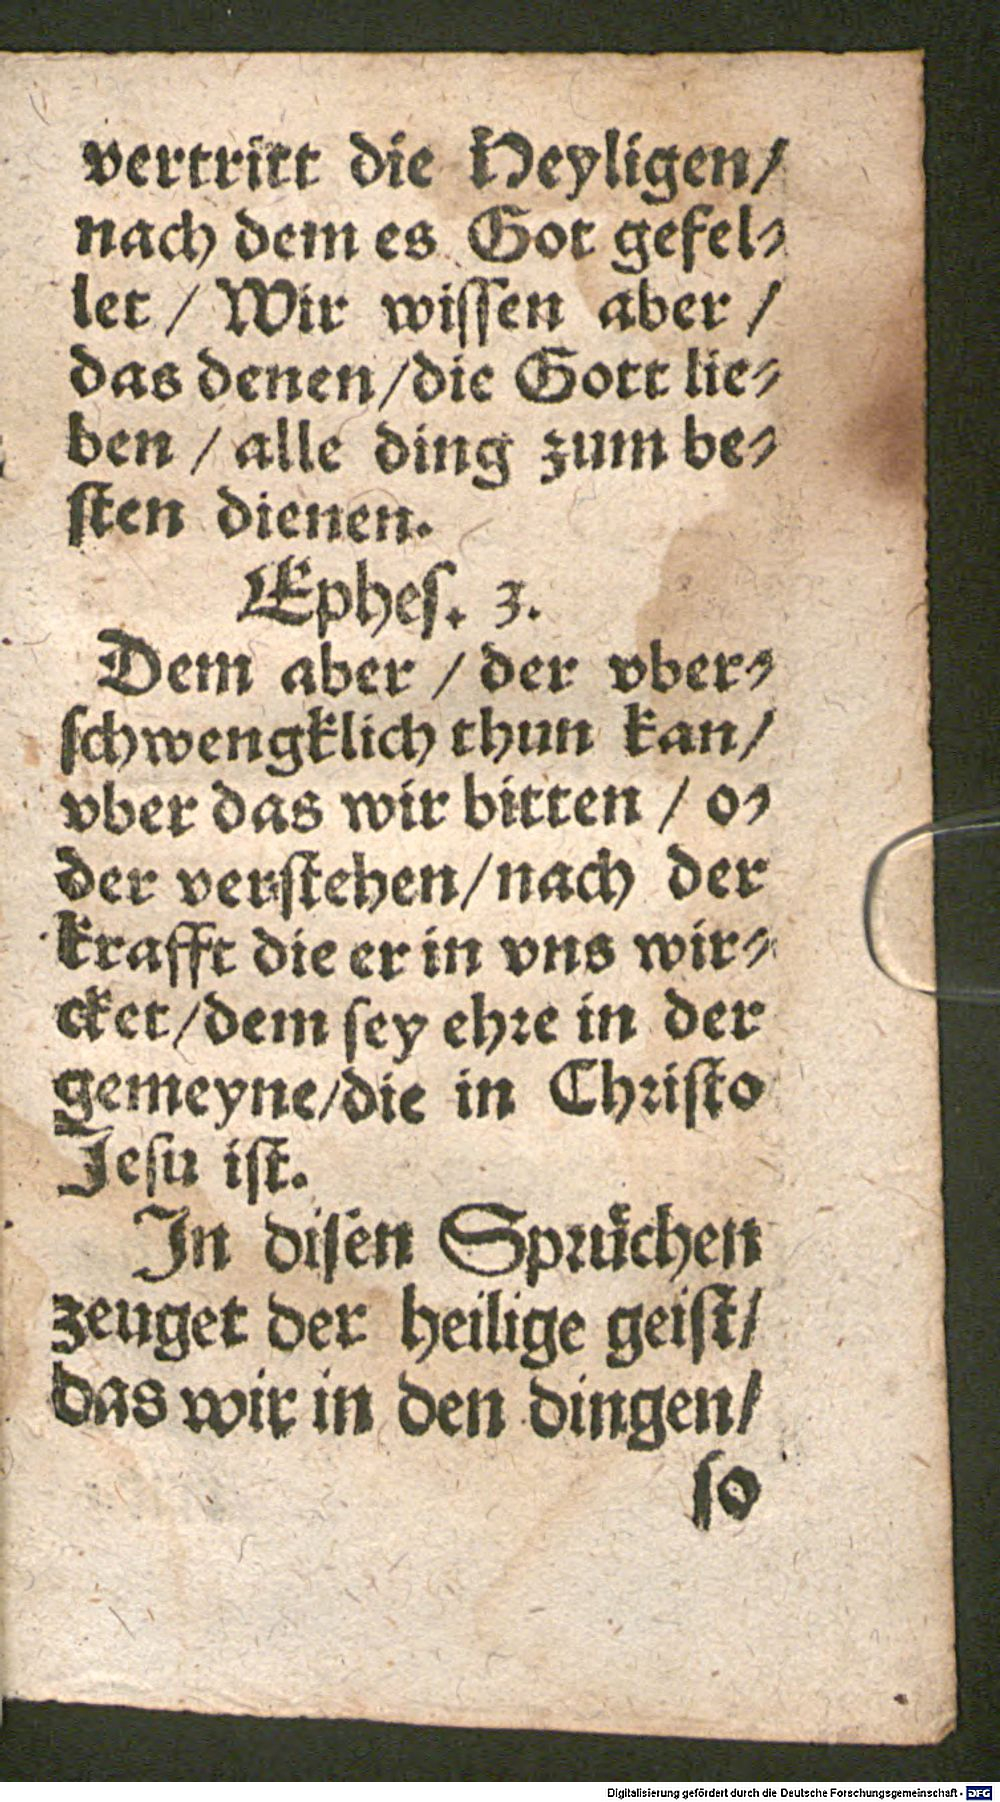 vertritt die Heyligen/
nach dem es Got gefel⸗
let / Wir wissen aber /
das denen/die Gott lie⸗
ben / alle ding zum be⸗
sten dienen.
Ephes. 3.
Dem aber / der vber⸗
schwengklich thun kan/
vber das wir bitten / o⸗
der verstehen/nach der
krafft die er in vns wir⸗
cket/dem sey ehre in der
gemeyne/die in Christo
Jesu ist.
In disen Sprüchen
zeuget der heilige geist/
das wir in den dingen/
so
Digitalisierung gefördert durch die Deutsche Forschungsgemeinschaft - DFG